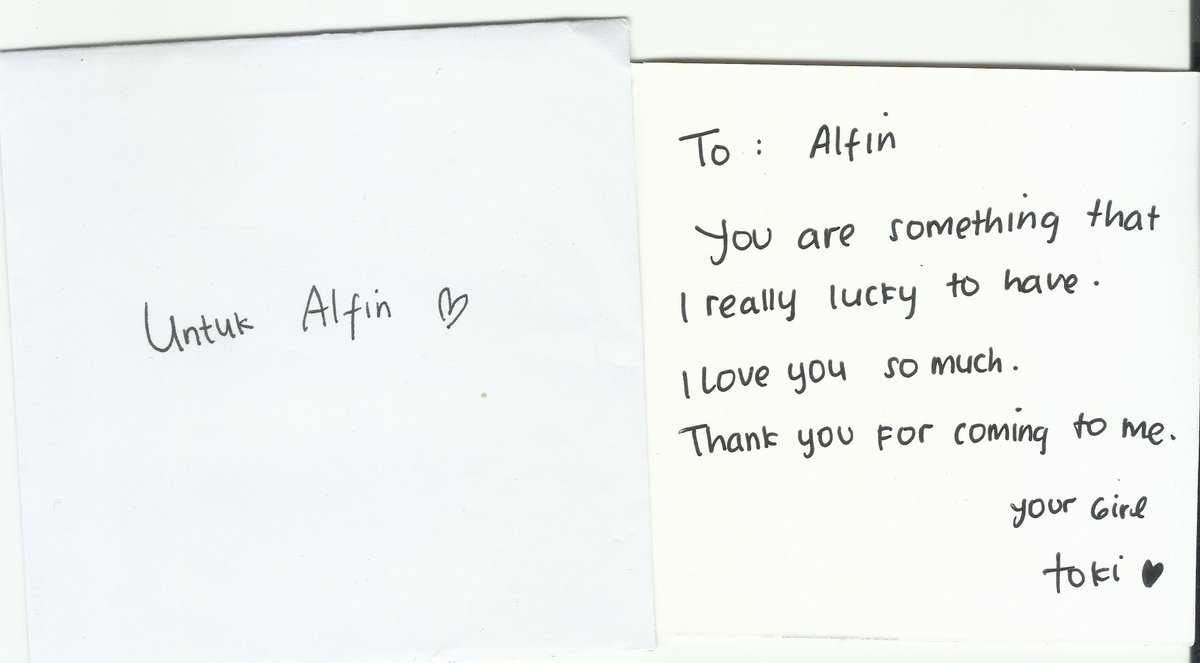 Untuk Alfin ♡
To : Alfin
You are something that
I really lucky to have.
I love you so much.
Thank you for coming to me.
your Girl
toki ♥